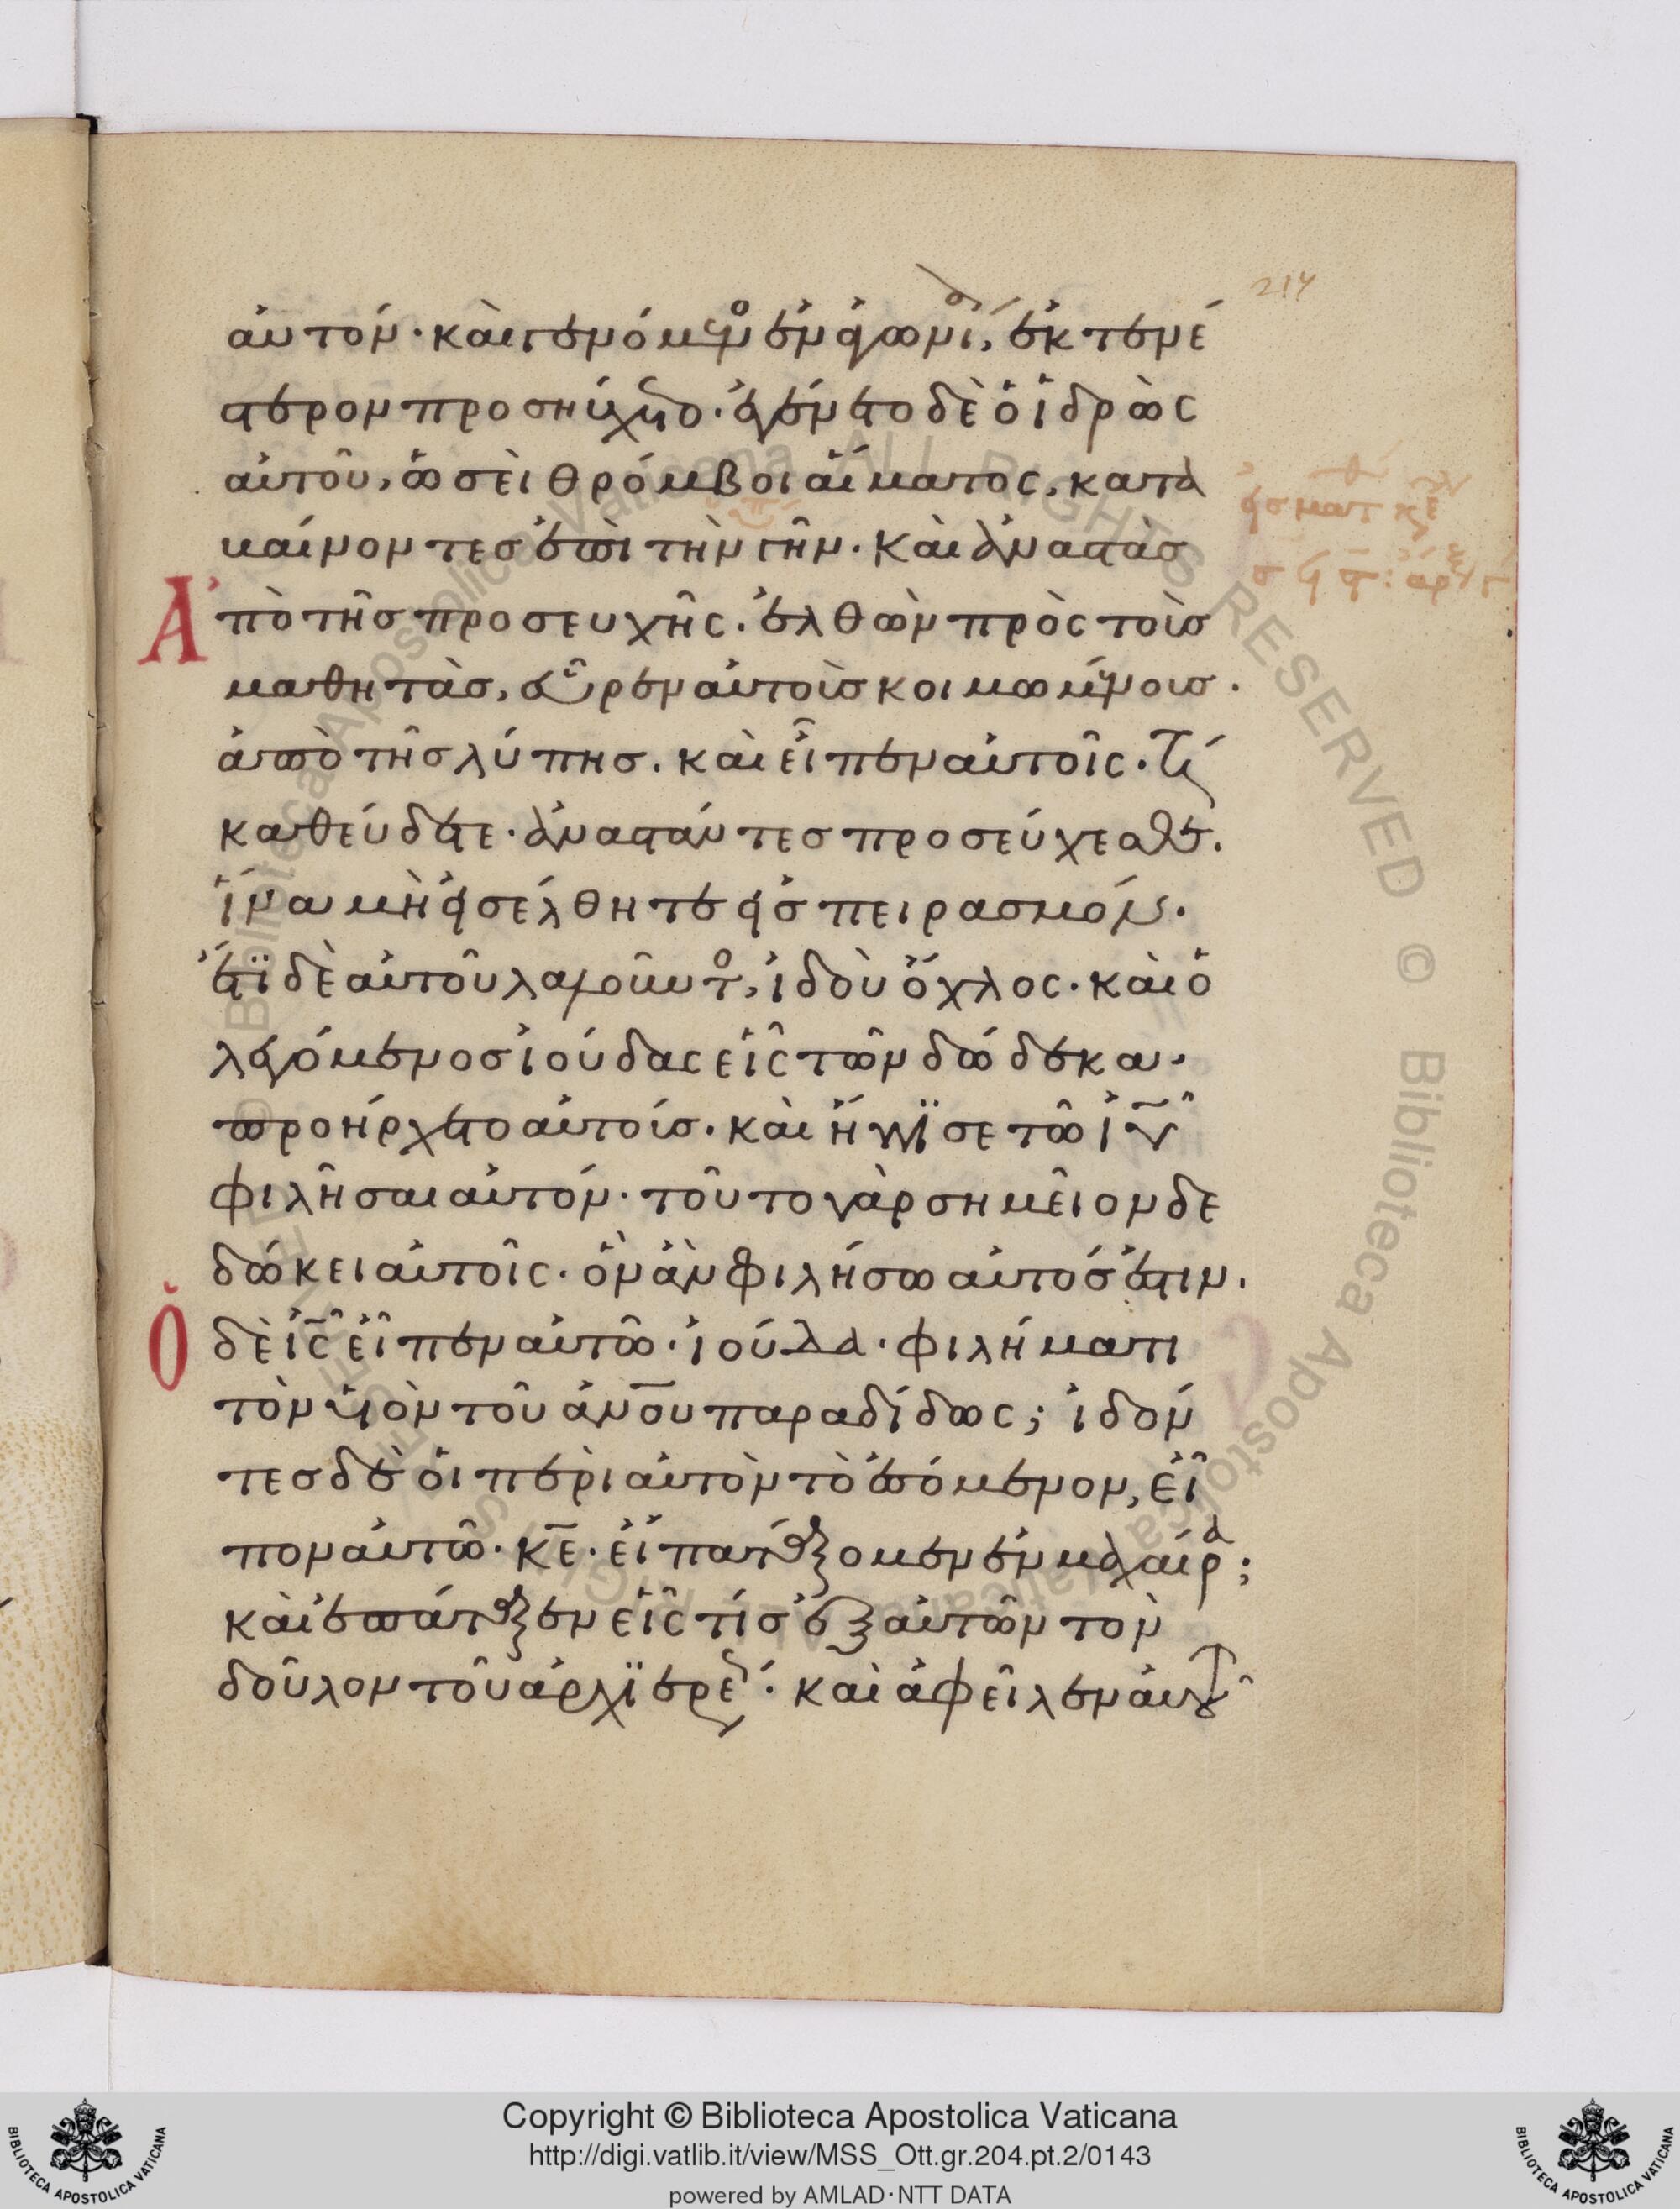 214
αὐτόν· καὶ γενόμενος ἐν ἀγωνίᾳ, ἐκτενέ
στερον προσηύχετο· ἐγένετο δὲ ὁ ἱδρὼς
αὐτοῦ, ὡσεὶ θρόμβοι αἵματος, κατα
βαίνοντες ἐπὶ τὴν γῆν. καὶ ἀναστὰς
Ἀπὸ τῆς προσευχῆς. ἐλθὼν πρὸς τοὺς
μαθητὰς, εὗρεν αὐτοὺς κοιμωμένους.
ἀπὸ τῆς λύπης. καὶ εἶπεν αὐτοῖς· τί
καθεύδετε· ἀναστάντες προσεύχεσθε.
ἵνα μὴ εἰσέλθητε εἰς πειρασμόν.
ἔτι δὲ αὐτοῦ λαλοῦντος, ἰδοὺ ὄχλος· καὶ ὁ
λεγόμενος ἰούδας εἷς τῶν δώδεκα.
προήρχετο αὐτούς. καὶ ἤγγϊσε τῶ ἰῦ
φιλῆσαι αὐτόν· τοῦτο γὰρ σημεῖον δε
δώκει αὐτοῖς· ὃν ἂν φιλήσω αὐτός ἐστιν.
Ὁ δὲ ἰς εἶπεν αὐτῶ· ἰούδα· φιλήματι
τὸν υἱὸν τοῦ ἀνου παραδίδως; ἰδόν
τες δὲ οἱ περὶ αὐτὸν τὸ ἐσόμενον, εἶ
πον αὐτῶ· κε· εἰ πατάξομεν ἐν μαχαίρα;
καὶ ἐπάταξεν εἷς τίς ἐξ αὐτῶν τὸν
δοῦλον τοῦ ἀρχϊερέως· καὶ ἀφεῖλεν αὐτοῦ
Copyright © Biblioteca Apostolica Vaticana
http://digi.vatlib.it/view/MSS_Ott.gr.204.pt.2/0143
powered by AMLAD·NTT DATA